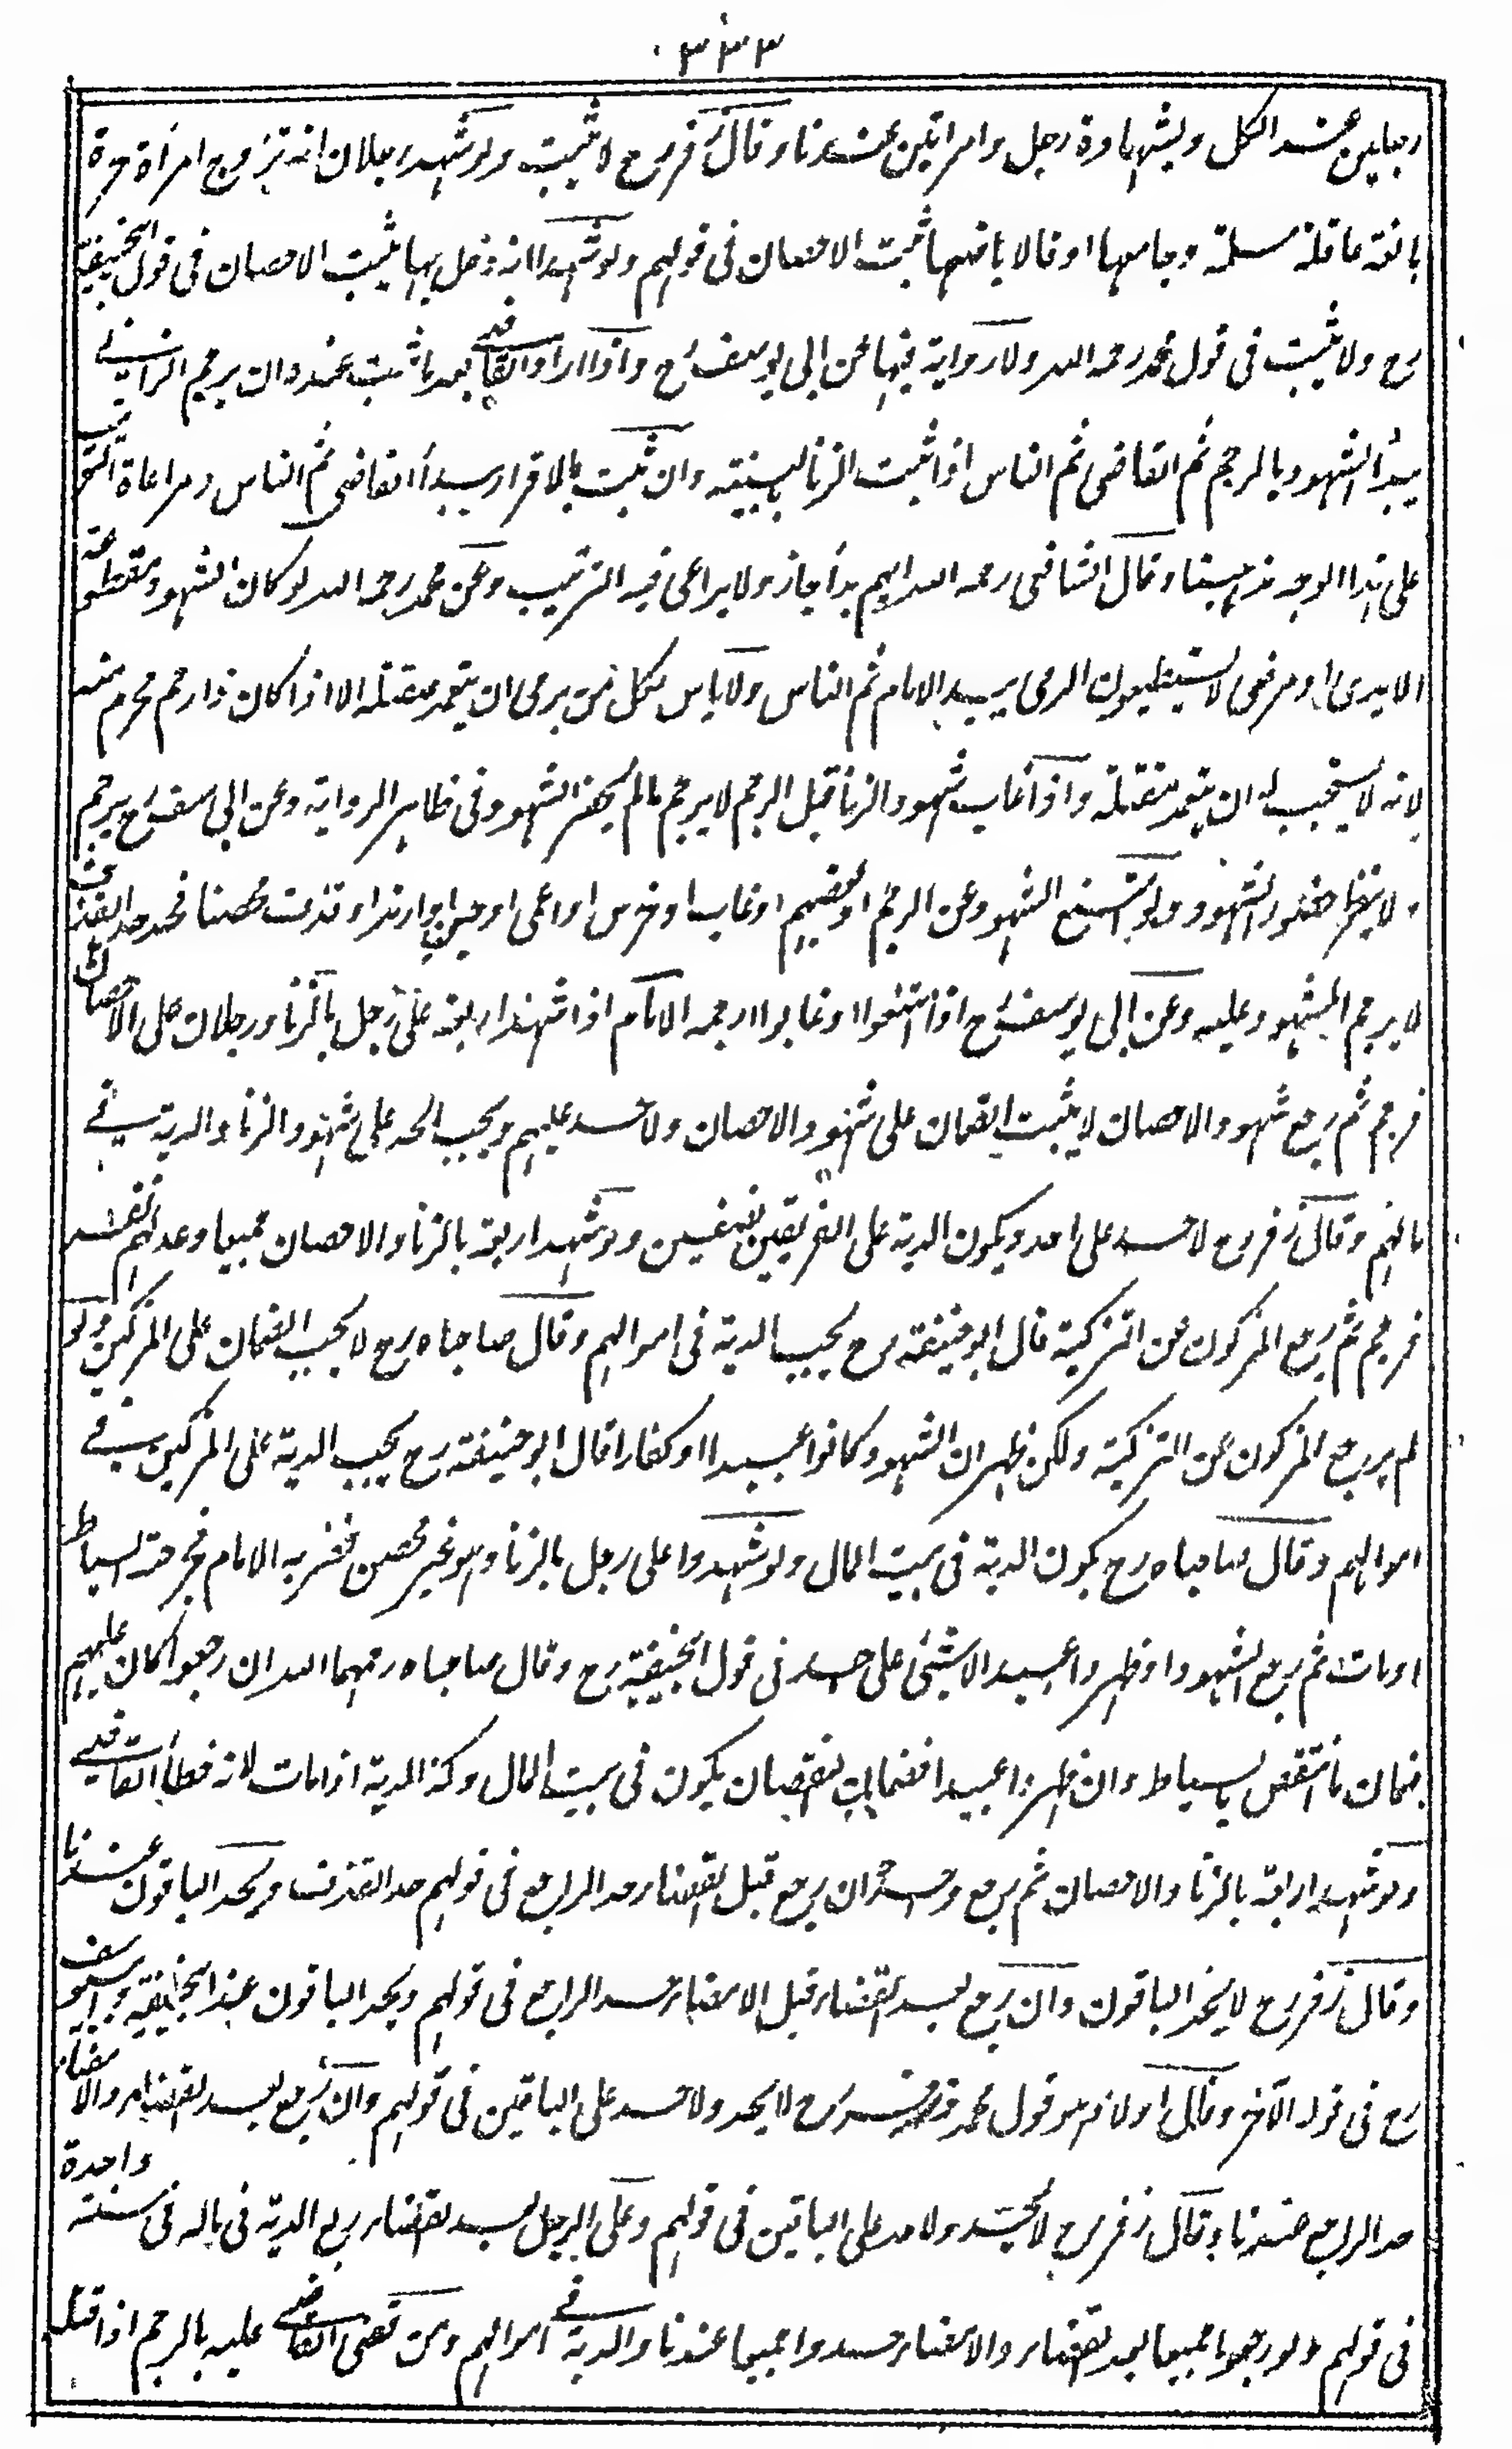 ٣٣٣
رجلين عند الكل وبشهادة رجل وامراتين عندنا وقال زفر رح لا يثبت ولو شهد رجلان انه تزوج امرأة حرة
بالغة عاقلة مسلمة وجامعها او قالا باضعها ثبت الاحصان فى قولهم ولو شهدا انه دخل بها يثبت الاحصان فى قول ابيحنيفة
رح ولا يثبت فى قول محمد رحمه الله ولا رواية فيها عن ابى يوسف رح واذا اراد القاضى بعد ما ثبت عنده ان يرجم الزانى
يبدأ الشهود بالرجم ثم القاضى ثم الناس اذا ثبت الزنا بالبينة وان ثبت بالاقرار يبدأ القاضى ثم الناس ومراعاة الترتيب
على هذا الوجه مذهبنا وقال الشافعى رحمه الله ايهم بدأ جاز ولا يراعى فيه الترتيب وعن محمد رحمه الله لو كان الشهود مقطوعة
الايدى او مرضى لا يستطيعون الرمى يبدء الامام ثم الناس ولا باس لكل من يرمى ان يتعمد مقتله الا اذا كان ذا رحم محرم منه
لانه لا يستحب له ان يتعمد مقتله واذا غاب شهود الزنا قبل الرجم لا يرجم مالم يحضر الشهود فى ظاهر الرواية وعن ابى يوسف رح يرجم
ولا ينتظر حضور الشهود ولو امتنع الشهود عن الرجم او بعضهم او غاب او خرس او عمى او جن او ارتد او قذف محصنا فحد حد القذف
لا يرجم المشهود عليه وعن ابى يوسف رح اذا امتنعوا او غابوا رجمه الامام اذا شهد اربعة على رجل بالزنا ورجلان على الاحصان
فرجم ثم رجع شهود الاحصان لا يثبت الضمان على شهود الاحصان ولا حد عليهم ويجب الحد على شهود الزنا والدية فى
مالهم وقال زفر رح لا حد على احد ويكون الدية على الفريقين نصفين ولو شهد اربعة بالزنا والاحصان جميعا وعدلهم نفر
فرجم ثم رجع المزكون عن التزكية قال ابو حنيفة رح يجب الدية فى اموالهم وقال صاحباه رح لا يجب الضمان على المزكين ولو
لم يرجع المزكون عن التزكية ولكن ظهر ان الشهود كانوا عبيدا او كفارا قال ابو حنيفة رح يجب الدية على المزكين فى
اموالهم وقال صاحباه رح يكون الدية فى بيت المال ولو شهدوا على رجل بالزنا وهو غير محصن فضربه الامام فجرحته السياط
او مات ثم رجع الشهود او ظهروا عبيدا لا شىٔ على احد فى قول ابيحنيفة رح وقال صاحباه رحمهما الله ان رجعوا كان عليهم
ضمان ما انتقص بالسياط وان ظهروا عبيدا فضمان النقصان يكون فى بيت المال وكذا الدية اذا مات لانه خطأ القاضى
ولو شهد اربعة بالزنا والاحصان ثم رجع واحد ان رجع قبل القضاء حد الراجع فى قولهم حد القذف ويحد الباقون عندنا
وقال زفر رح لا يحد الباقون وان رجع بعد القضاء قبل الامضاء حد الراجع فى قولهم ويحد الباقون عند ابيحنيفة وابى يوسف
رح فى قوله الآخر وقال اولا وهو قول محمد وزفر رح لا يحد ولا حد على الباقين فى قولهم وان رجع بعد القضاء والامضاء
حد الراجع عندنا وقال زفر رح لا يحد ولا حد على الباقين فى قولهم وعلى الراجع بعد القضاء ربع الدية فى ماله فى سنة واحدة
فى قولهم ولو رجعوا جميعا بعد القضاء والامضاء حدوا جميعا عندنا والدية فى اموالهم ومن قضى القاضى عليه بالرجم اذا قتله